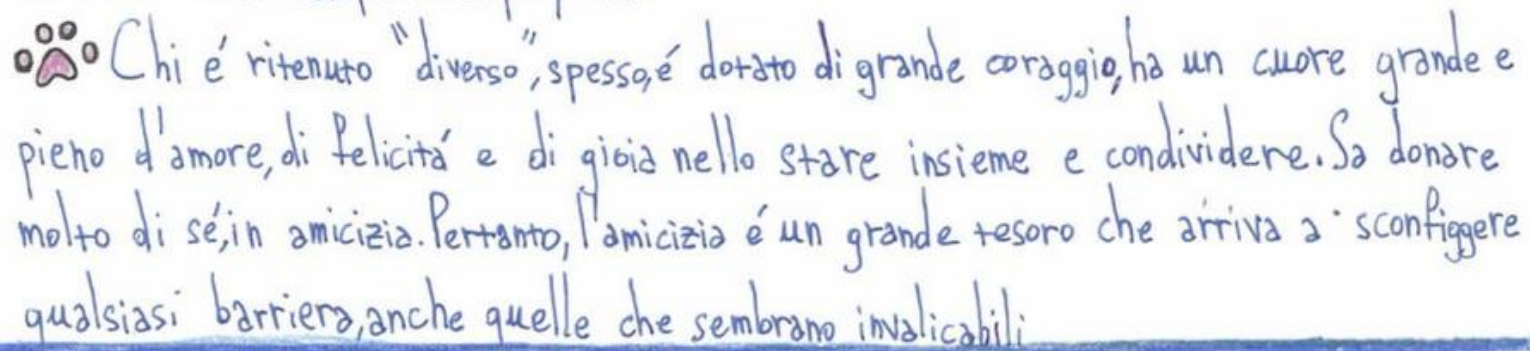 Chi é ritenuto "diverso", spesso, é dotato di grande coraggio, ha un cuore grande e
pieno d'amore, di felicitá e di gioia nello stare insieme e condividere. Sa donare
molto di sé, in amicizia. Pertanto, l'amicizia é un grande tesoro che arriva a sconfiggere
qualsiasi barriera, anche quelle che sembrano invalicabili